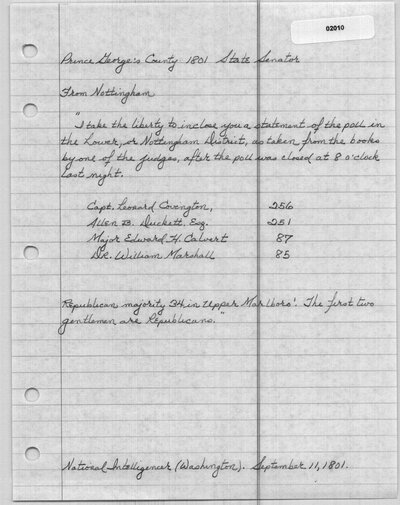 02010
Prince George's County 1801 State Senator
From Nottingham
"I take the liberty to inclose you a statement of the poll in
the Lower, or Nottingham District, as taken from the books
by one of the judges, after the poll was closed at 8 o'clock
last night.
Capt. Leonard Covington, 256
Allen B. Duckett, Esq. 251
Major Edward H. Calvert 87
DR. William Marshall 85
Republican majority 34 in Upper Marlboro'. The first two
gentlemen are Republicans."
National Intelligencer (Washington). September 11, 1801.